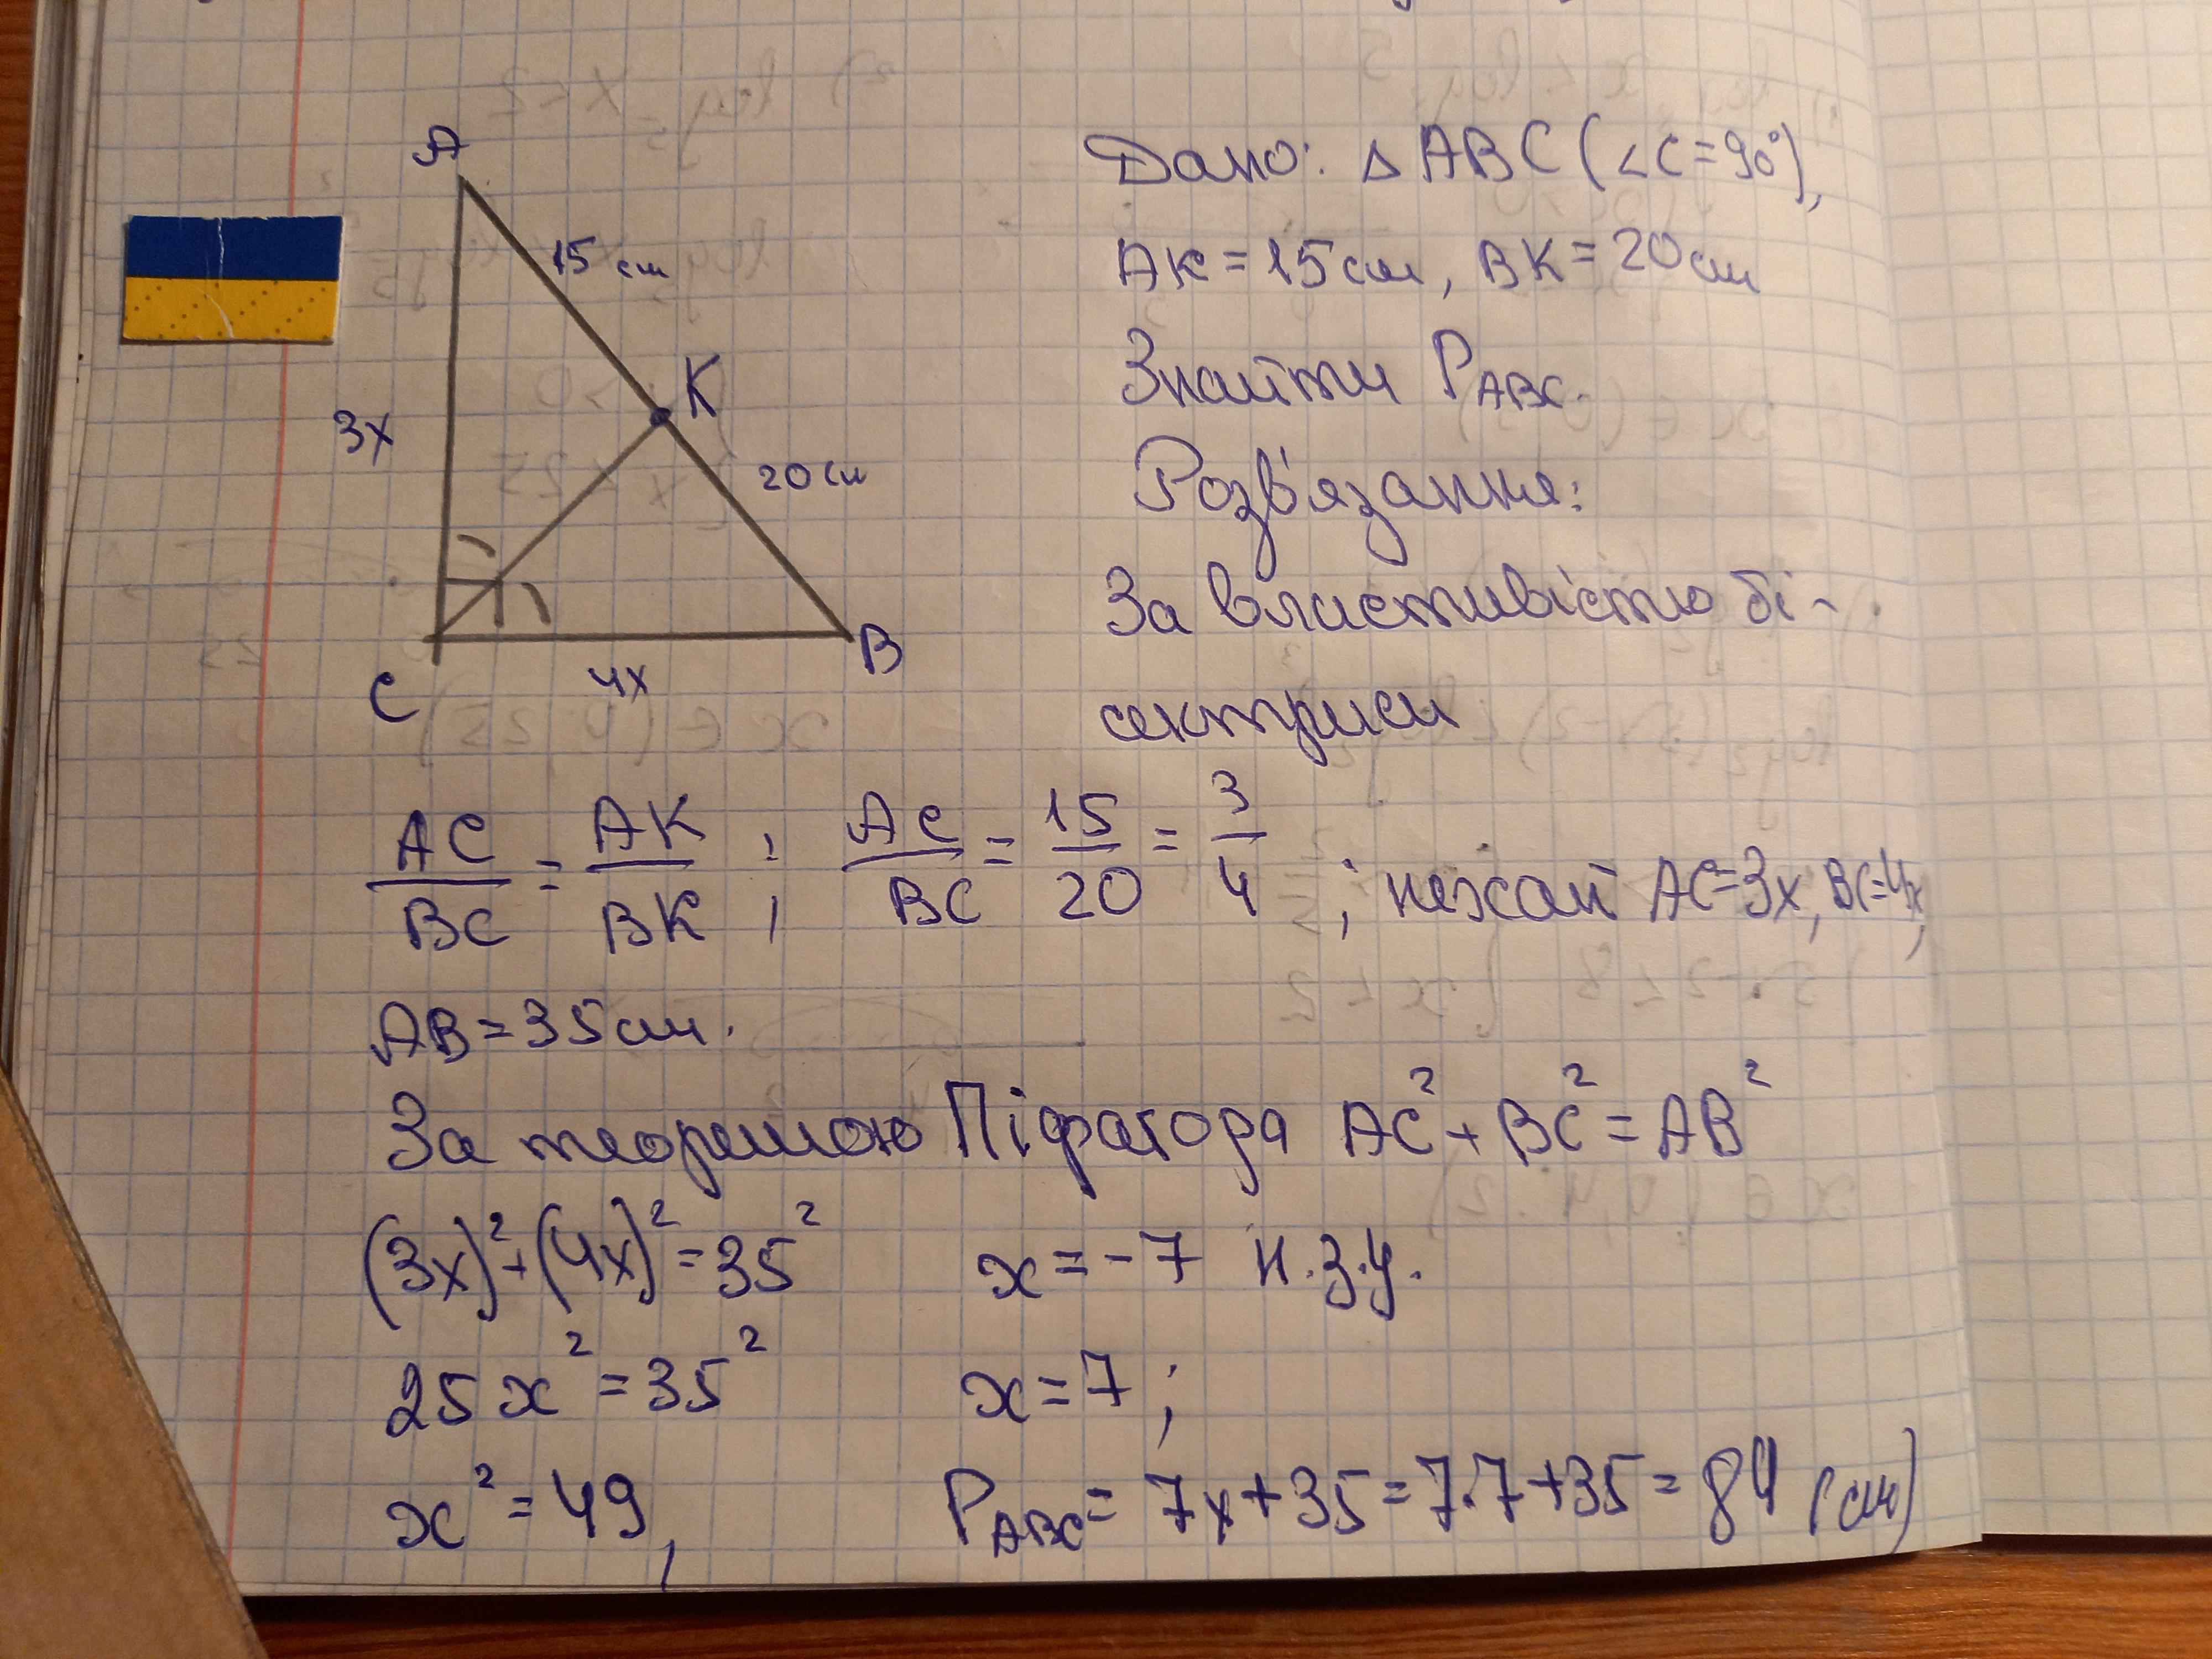 A
15 см
K
3x
20 см
C
4x
B
Дано: △ ABC (∠C=90°),
AK = 15 см, BK = 20 см
Знайти P_ABC.
Розв'язання:
За властивістю бі-
сектриси
AC/BC = AK/BK ; AC/BC = 15/20 = 3/4 ; нехай AC=3x, BC=4x,
AB = 35 см.
За теоремою Піфагора AC² + BC² = AB²
(3x)² + (4x)² = 35²
x = -7 н.з.у.
25x² = 35²
x = 7 ;
x² = 49,
P_ABC = 7x + 35 = 7·7 + 35 = 84 (см)